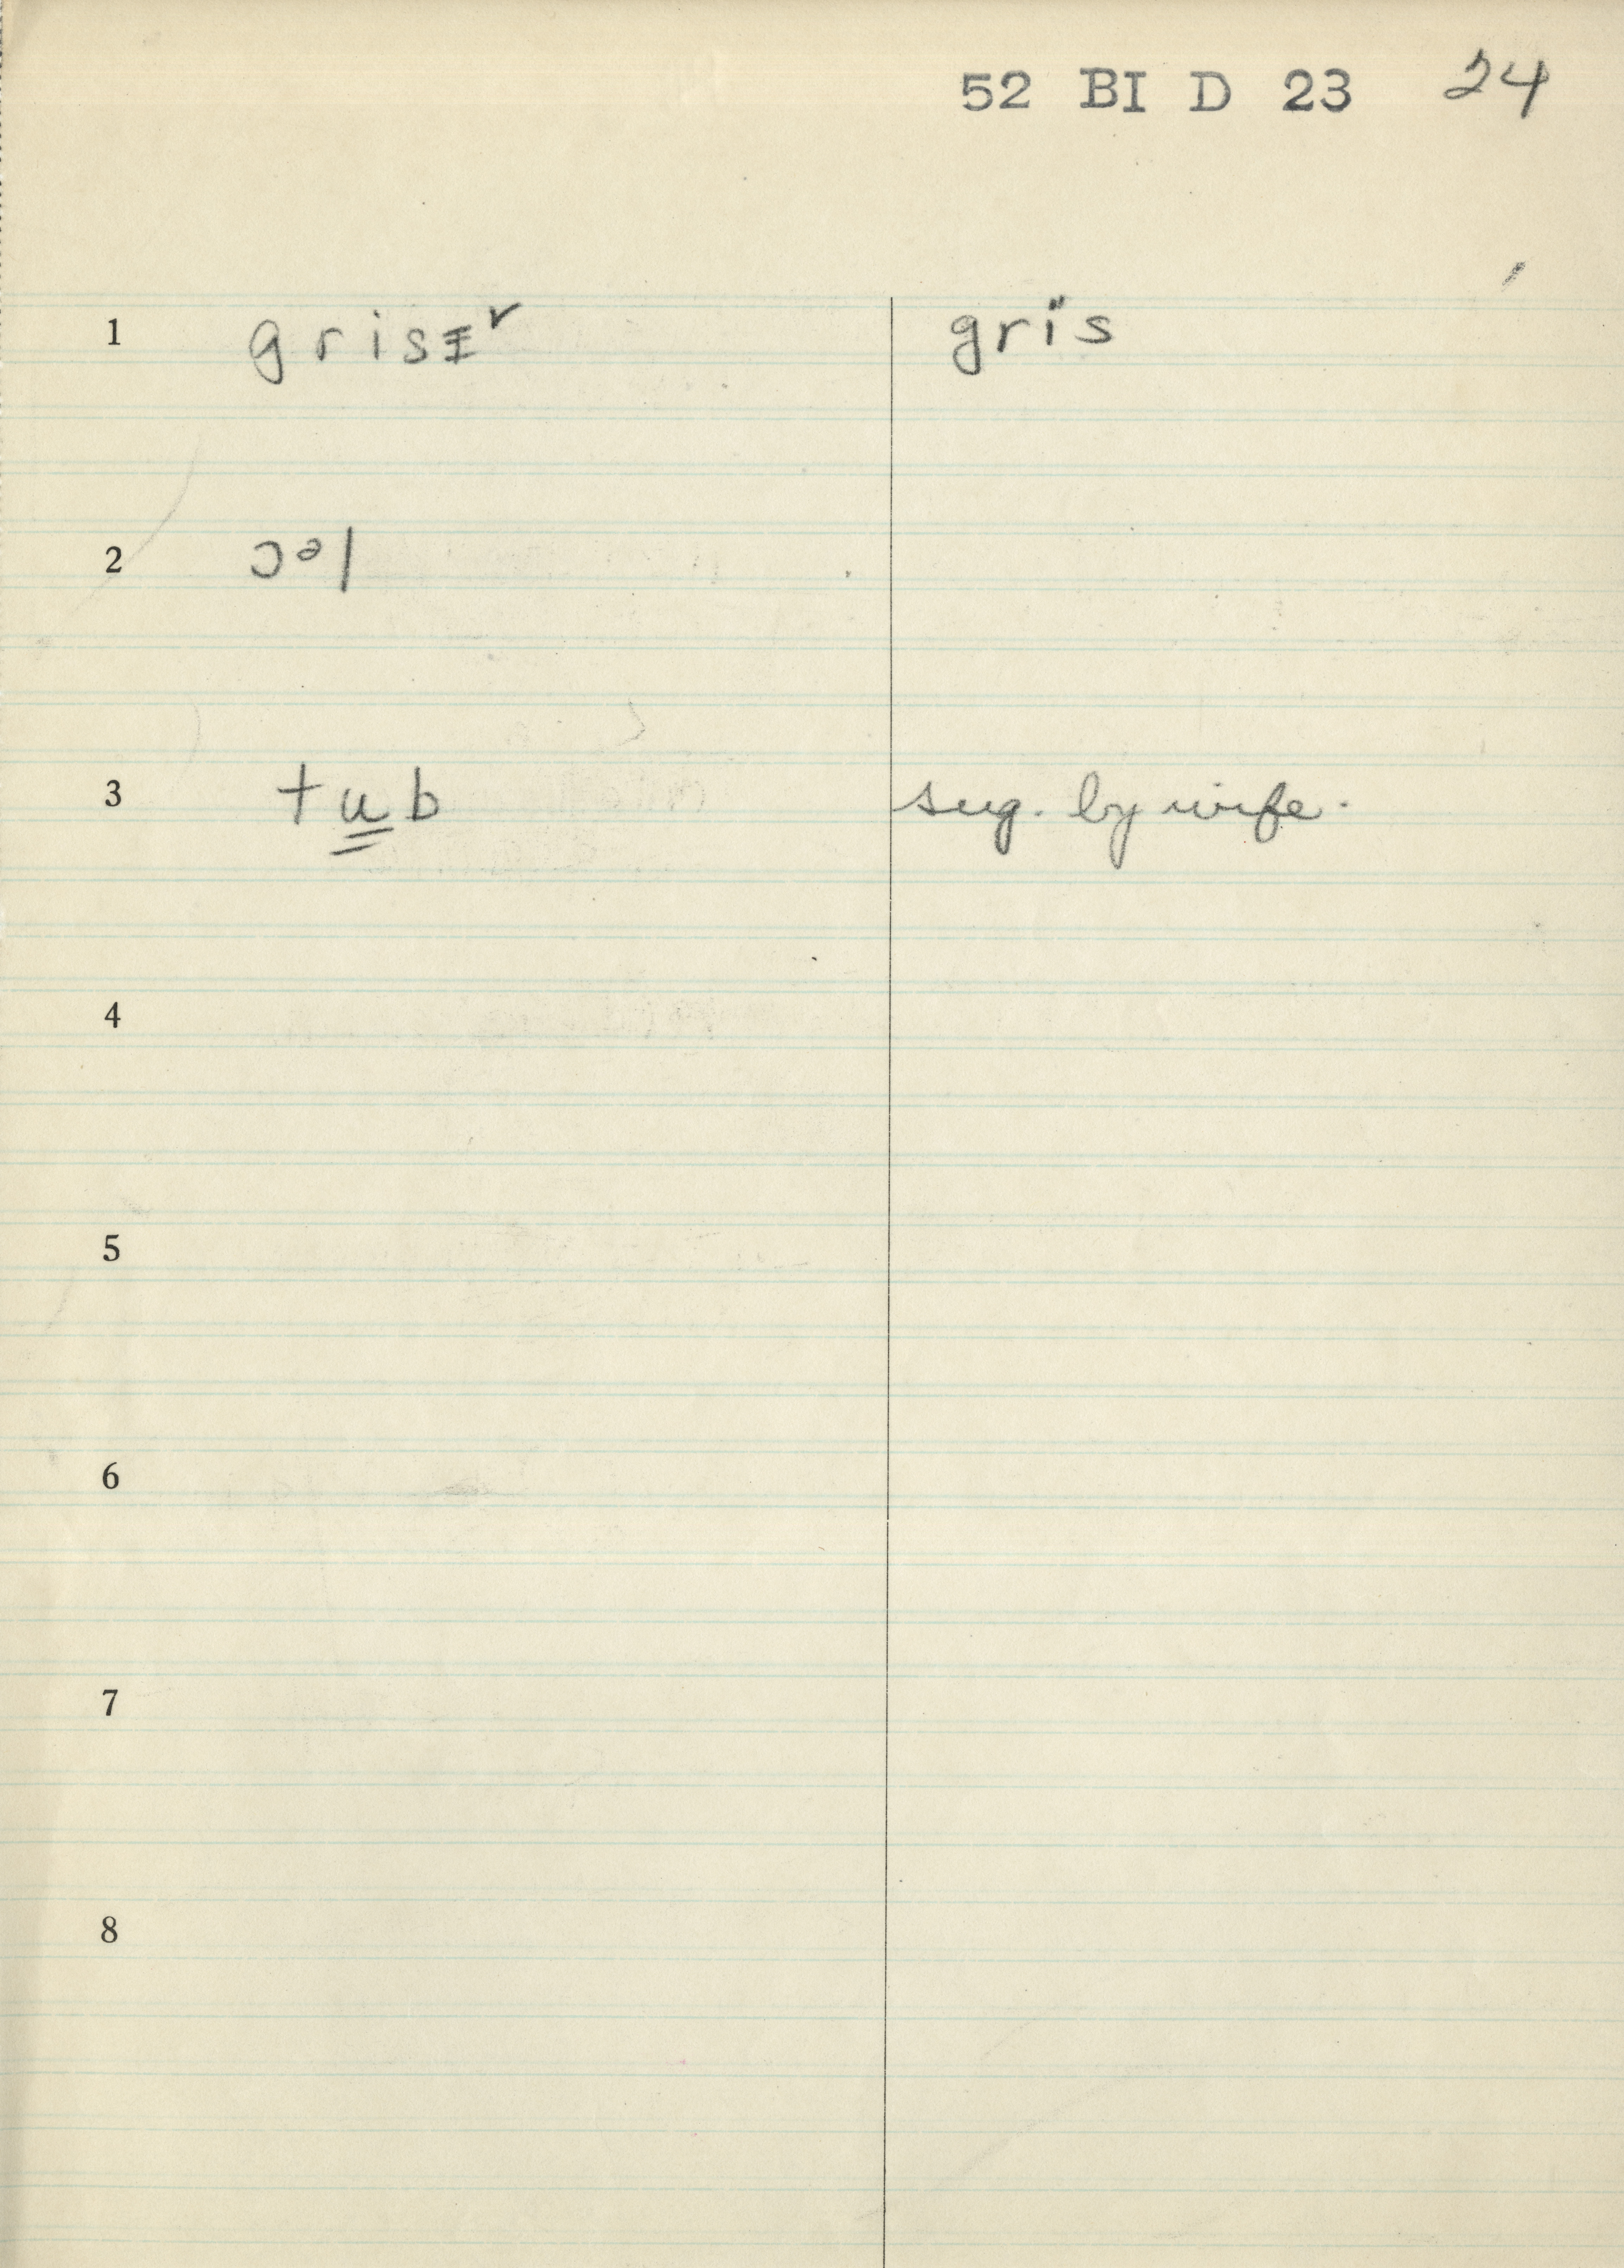 52 BI D 23 24
1 grisɪ̵ʳ grïs
2 ɔᵊl
3 tu̳b sug. by wife.
4
5
6
7
8